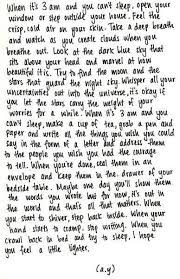 When it's 3 am and you can't sleep, open your
window or step outside your house. Feel the
crisp, cold air on your skin. Take a deep breath
and watch as you create clouds when you
breathe out. Look at the dark blue sky that
sits above your head and marvel at how
beautiful it is. Try to find the moon and the
stars that guard the night sky. Whisper all your
uncertainties out into the universe, it's okay if
you let the stars carry the weight of your
worries for a while. When it's 3 am and you
can't sleep, make a cup of tea, grab a pen and
paper and write all the things you wish you could
say in the form of a letter and address them
to the people you wish you had the courage
to tell. When you're done, seal them in an
envelope and keep them in the drawer of your
bedside table. Maybe one day you'll show them
the words you wrote but for now, it's out in
the world and that's all that matters. When
you start to shiver, step back inside. When your
hand starts to cramp, stop writing. When you
crawl back in bed and try to sleep, I hope
you feel a little lighter.
(a.y)